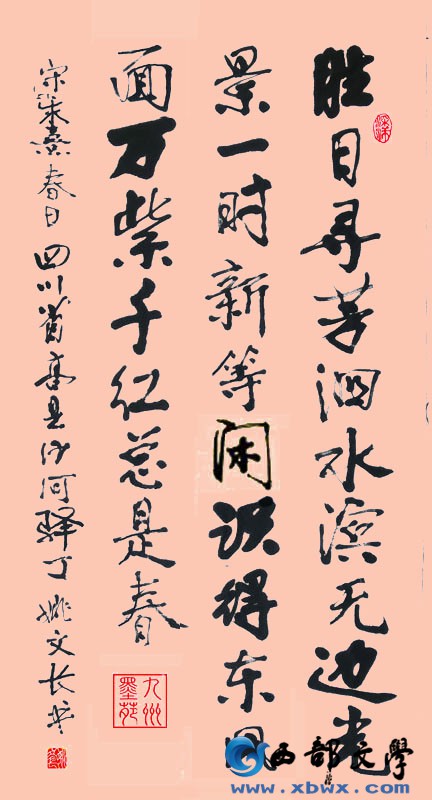 胜日寻芳泗水滨无边光
景一时新等闲识得东风
面万紫千红总是春
宋朱熹春日四川省高县沙河驿丁姚文长书
九州
墨苑
西部文學
www.xbwx.com